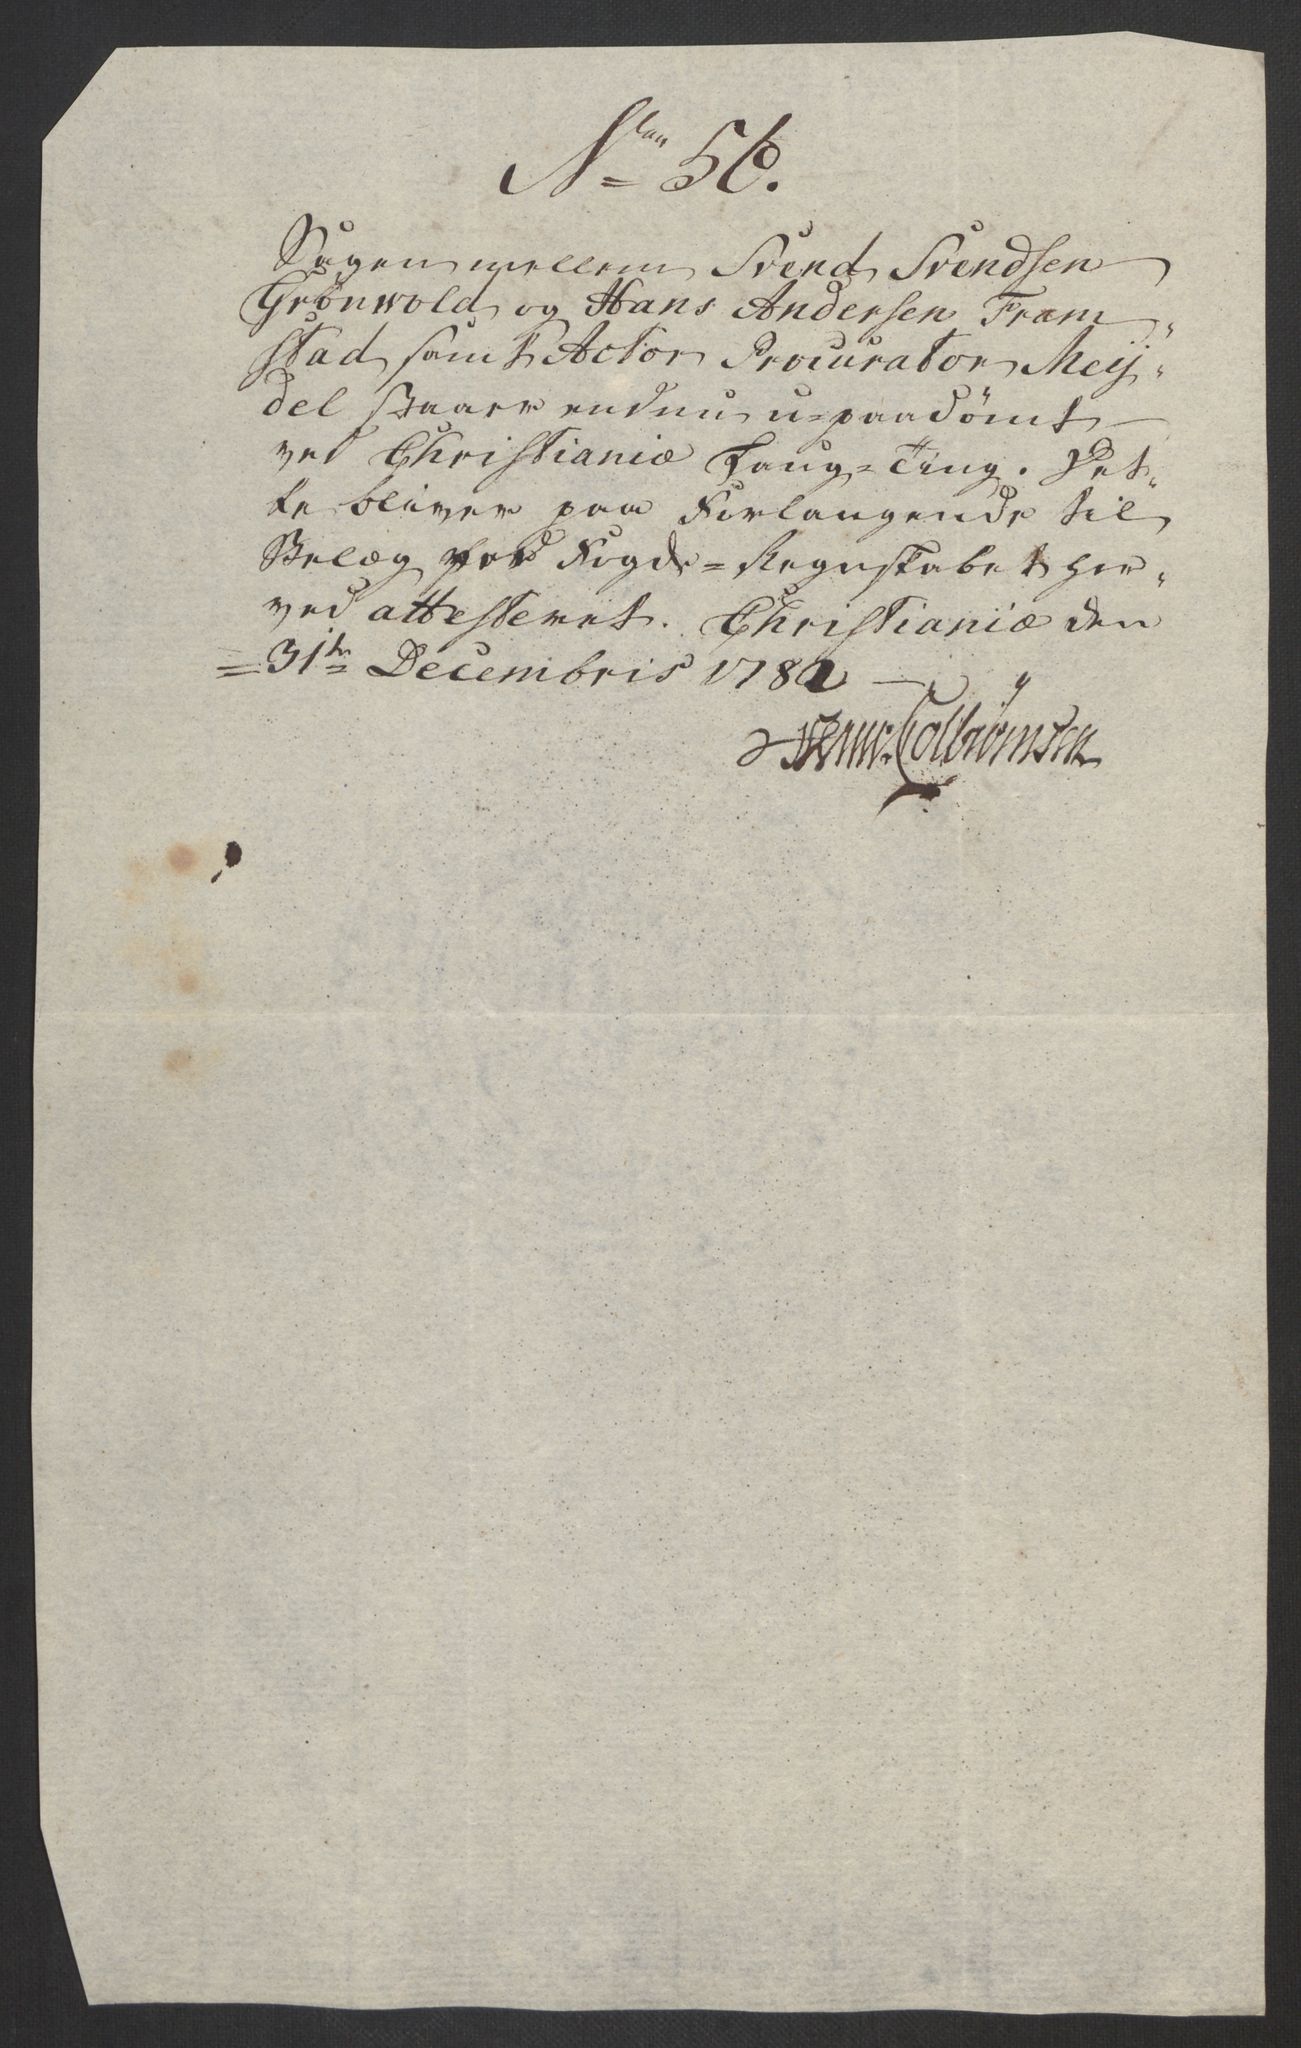 No 56.
Sagen mellem Svend Svendsen
Grönwold og Hans Andersen Fram-
stad samt Actor Procurator Meij-
del staaer endnu u-paadömt
ved Christianiæ Laug-Ting. Det-
te bliver paa Forlangende til
Belæg for Fogde-Regnskabet her-
ved attesteret. Christianiæ den
31te Decembris 1782
Colbiørnsen